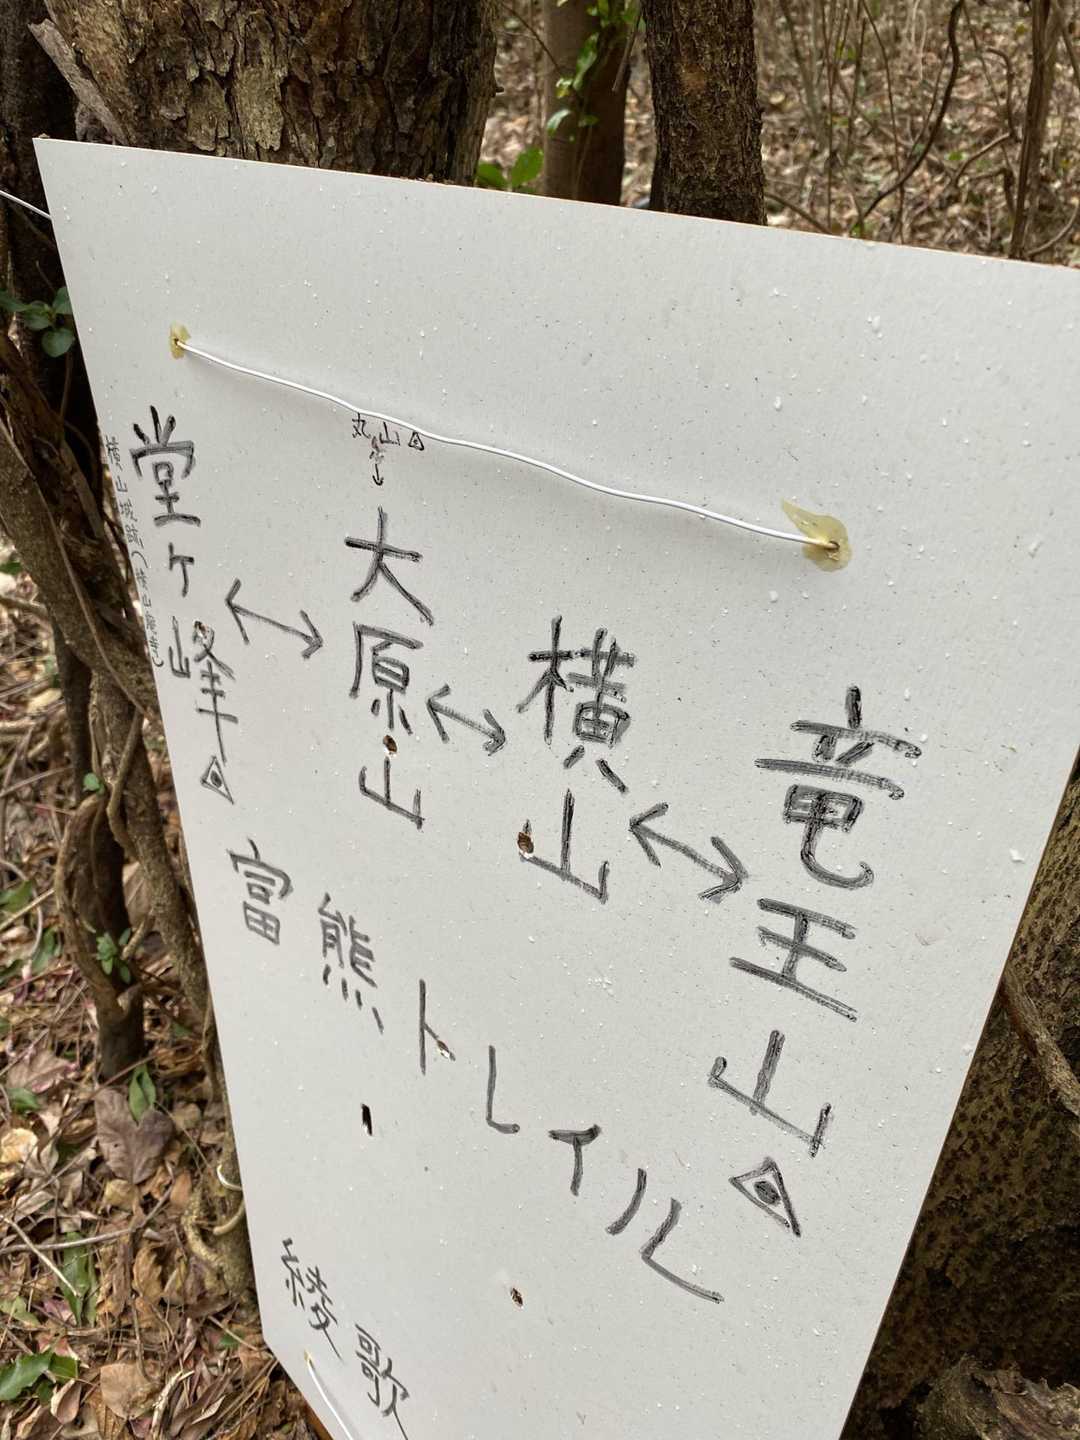 丸山
堂ヶ峰 ↔ 大原山 ↔ 横山 ↔ 竜王山
横山城跡(横山
富熊トレイル
綾歌